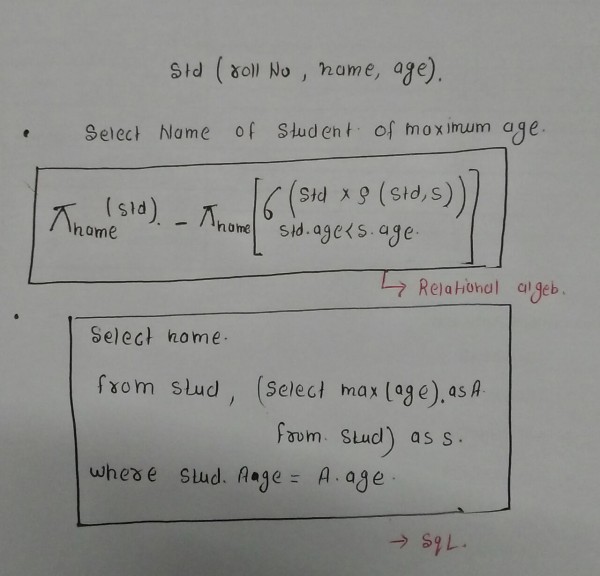 Std (roll No, name, age).
• Select Name of Student of maximum age.
π name (std). - π name [σ (std x ρ (std, s))]
std.age < s.age.
↳ Relational algeb.
• Select name.
from stud, (Select max (age). as A.
from. stud) as s.
where stud. Aage = A. age.
→ SqL.